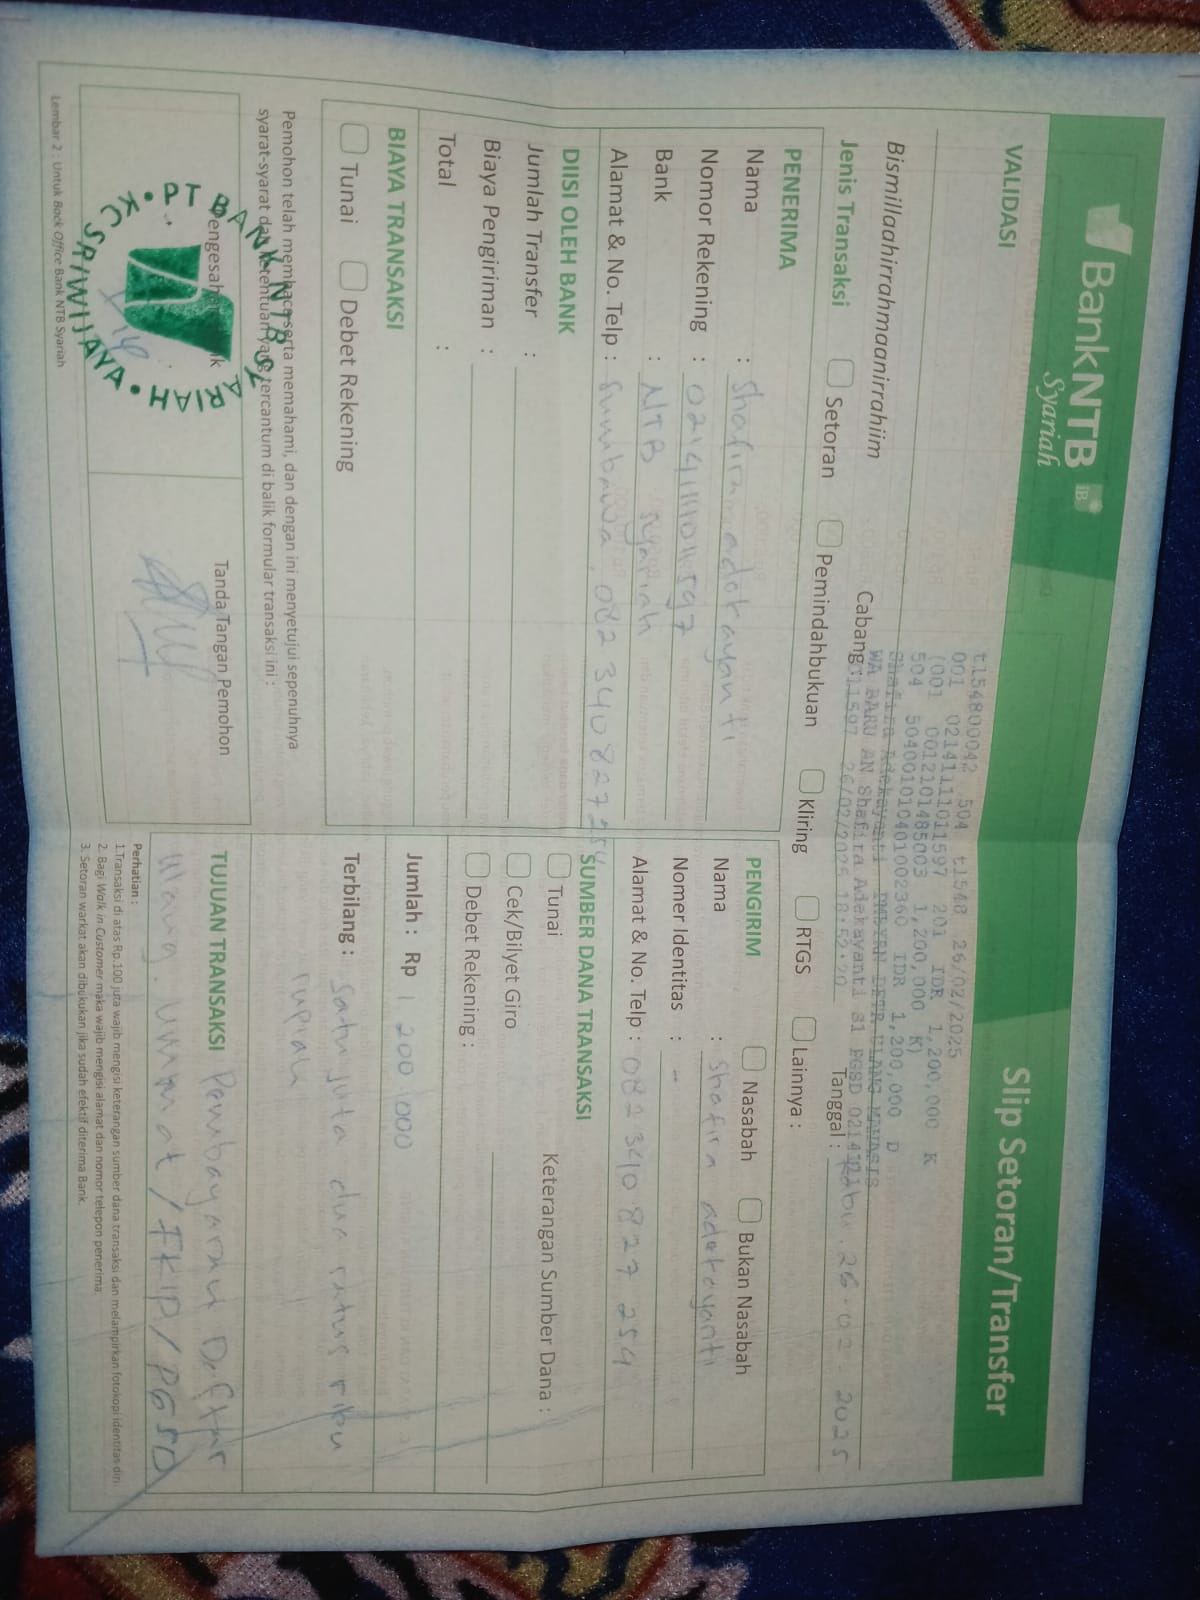 BankNTB
Syariah
iB
Slip Setoran/Transfer
VALIDASI
t154800042 504 t1548 26/02/2025
001 0214111011597 201 IDR 1,200,000 K
(001 0012101485003 1,200,000 K)
504 5040010104001002360 IDR 1,200,000 D
Shafira Adekayanti DAFTAR ULANG
WA BARU AN Shafira Adekayanti S1 PGSD
26/02/2025 18:52:20
Bismillaahirrahmaanirrahiim
Cabang
Tanggal : Rabu. 26-02-2025
Jenis Transaksi
Setoran
Pemindahbukuan
Kliring
RTGS
Lainnya :
PENERIMA
Nama : Shafira adekayanti
Nomor Rekening : 0214111011597
Bank : NTB syariah
Alamat & No. Telp : Sumbawa, 082 340 827 254
PENGIRIM
Nasabah
Bukan Nasabah
Nama : Shafira adekayanti
Nomer Identitas : -
Alamat & No. Telp : 082 340 827 254
DISI OLEH BANK
Jumlah Transfer :
Biaya Pengiriman :
Total :
SUMBER DANA TRANSAKSI
Tunai
Cek/Bilyet Giro
Debet Rekening :
Keterangan Sumber Dana :
BIAYA TRANSAKSI
Tunai
Debet Rekening
Jumlah : Rp 1 200 000
Terbilang : Satu juta dua ratus ribu
rupiah
Pemohon telah membaca serta memahami, dan dengan ini menyetujui sepenuhnya
syarat-syarat dan ketentuan yang tercantum di balik formular transaksi ini :
Tanda Tangan Pemohon
PT BANK NTB SYARIAH
SRIWIJAYA
TUJUAN TRANSAKSI Pembayaran Daftar
Ulang Ummat / FKIP / PGSD
Perhatian :
1.Transaksi di atas Rp.100 juta wajib mengisi keterangan sumber dana transaksi dan melampirkan fotokopi identitas diri.
2. Bagi Walk in Customer maka wajib mengisi alamat dan nomor telepon penerima.
3. Setoran warkat akan dibukukan jika sudah efektif diterima Bank.
Lembar 2 : Untuk Back Office Bank NTB Syariah